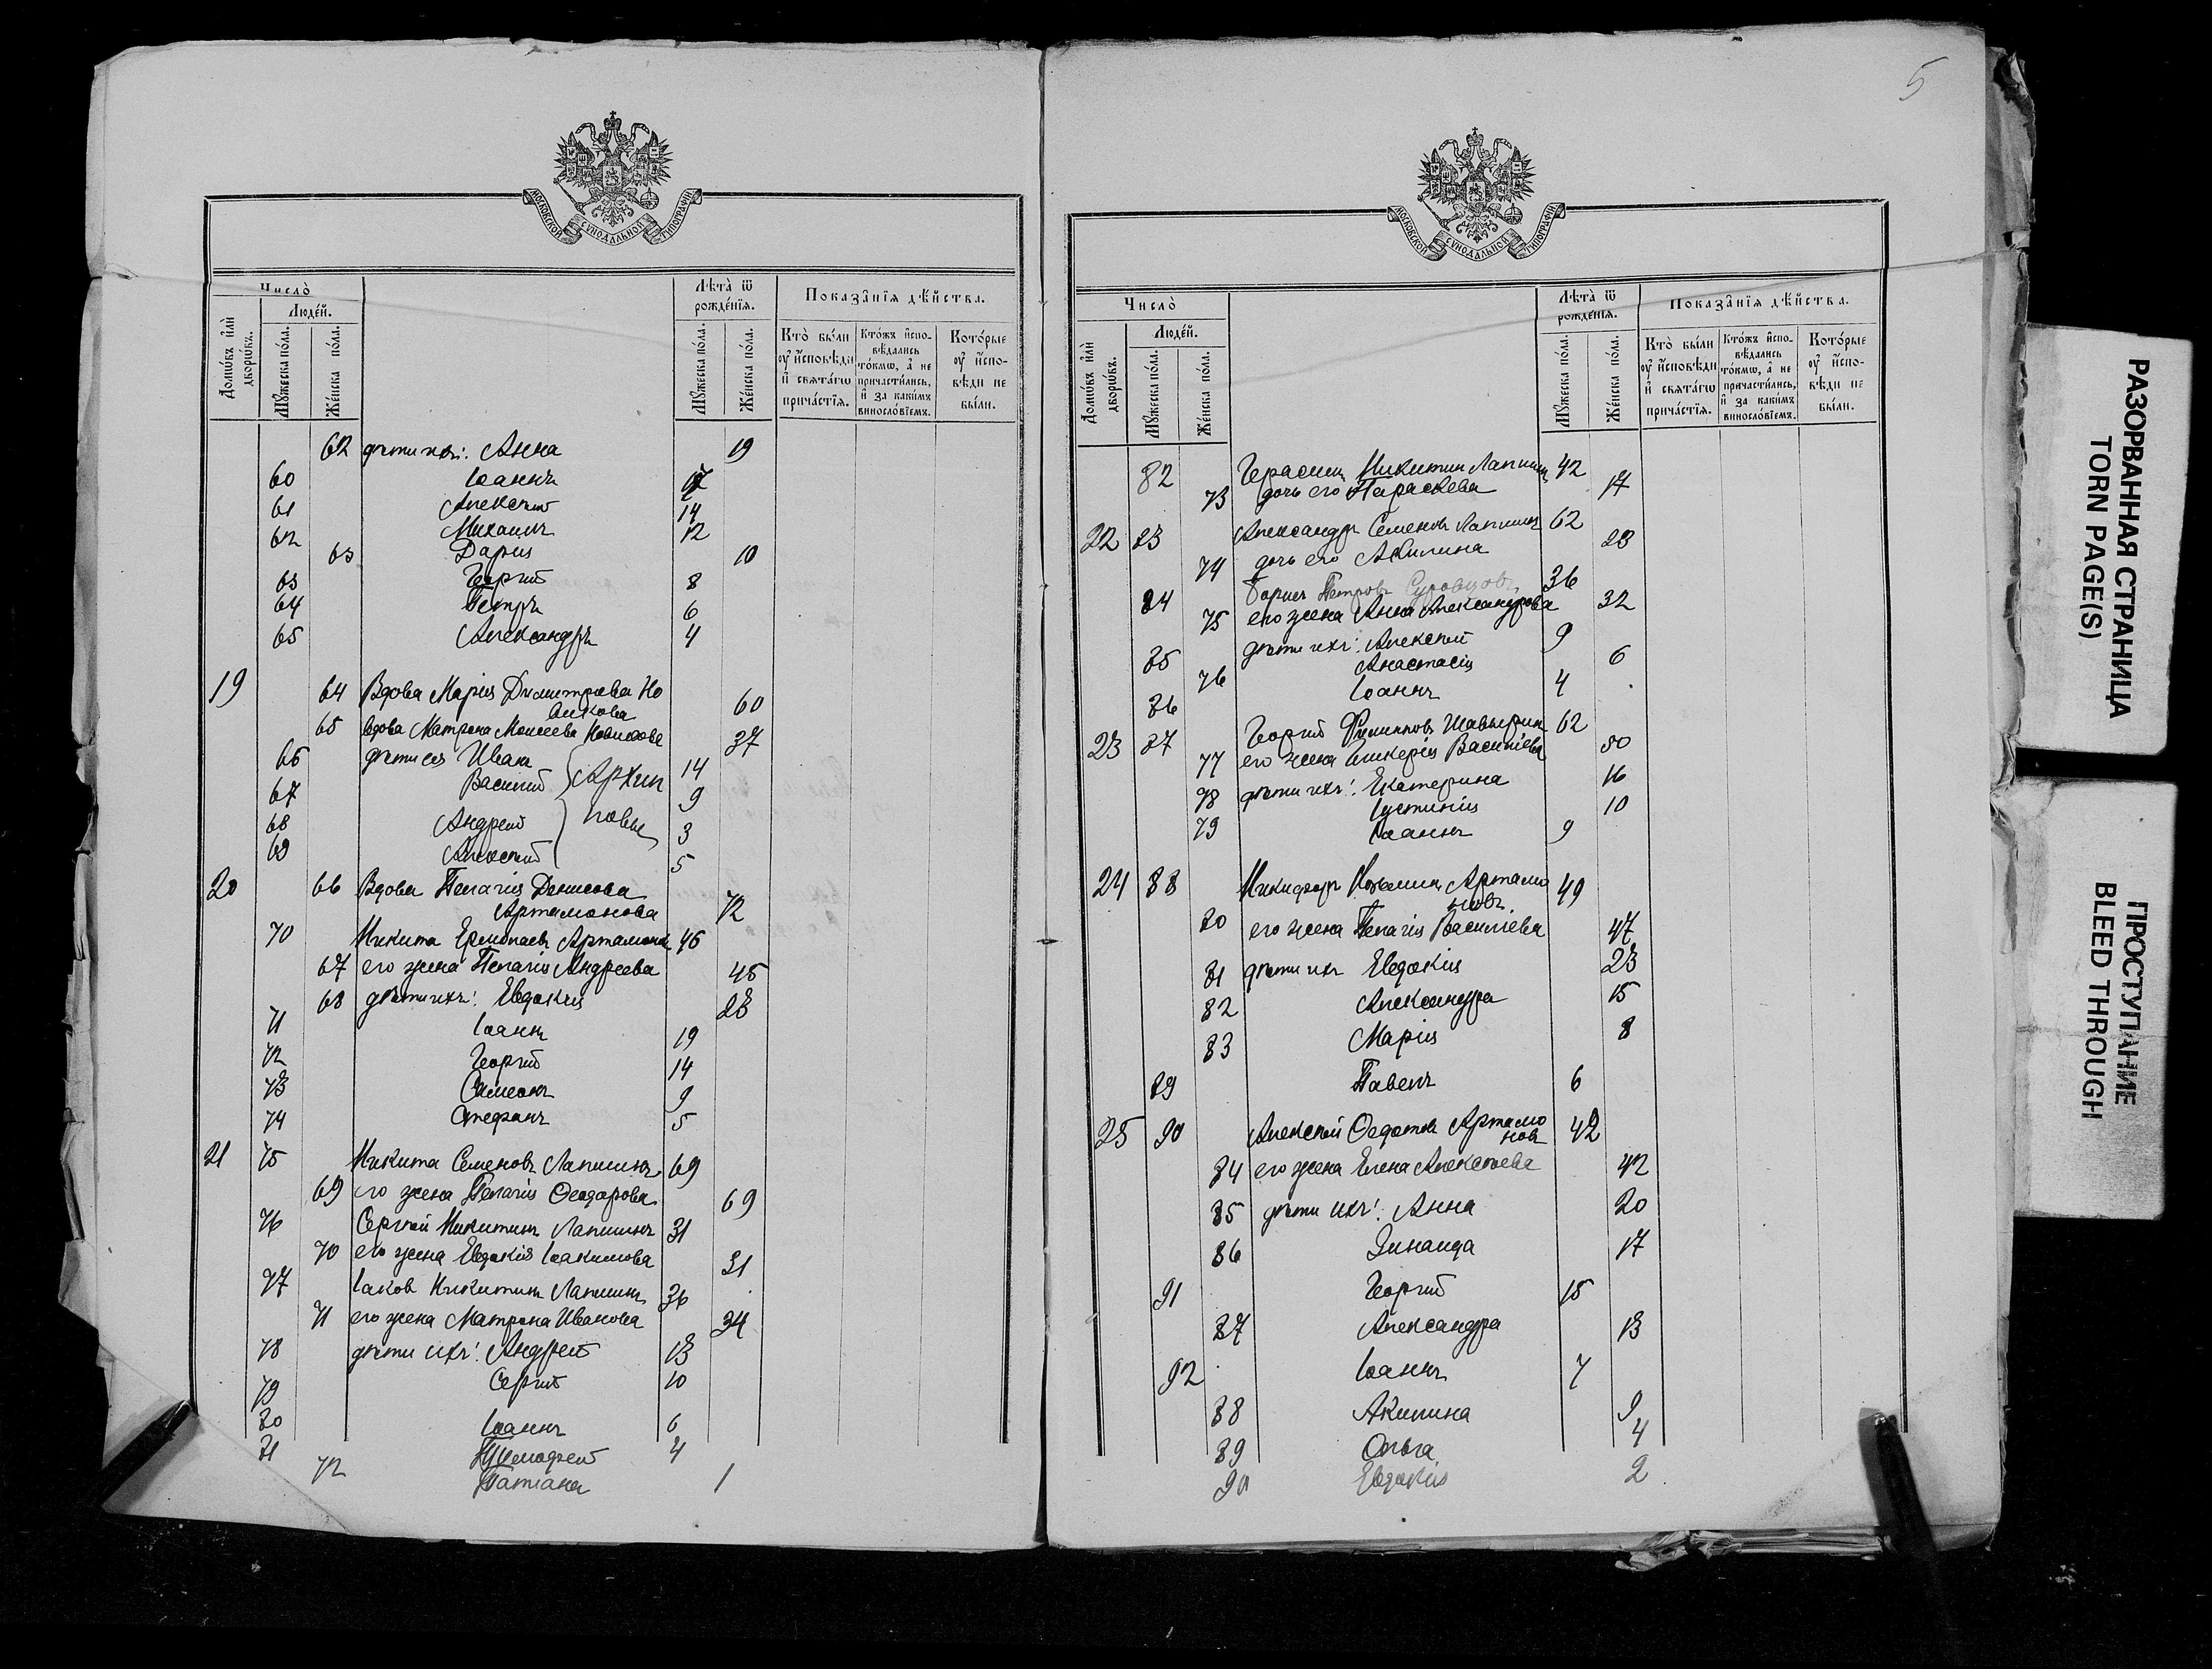 МОСКОВСКОЙ СѴНОДАЛЬНОЙ ТИПОГРАФІИ.
Число̀
Домѡ́въ и҆лѝ дворѡ́въ.
Люде́й.
Мꙋ́жеска по́ла.
Же́нска по́ла.
Лѣ́та ѿ рожде́нїя.
Мꙋ́жеска по́ла.
Же́нска по́ла.
Показа̂нїя дѣ́йства.
Кто̀ бы́ли оу҆ и҆сповѣди и҆ свѧта́гѡ прича́стїя.
Кто́жъ и҆спо-вѣдались то́кмѡ, а҆ не причасти́лись, и҆ за каки́мъ винослові́емъ.
Кото́рые оу҆ и҆спо-вѣди не бы́ли.
62 дѣти ихъ: Анна 19
60 Іоаннъ 17
61 Алексѣй 14
62 Михаилъ 12
63 Дарія 10
63 Георгій 8
64 Петръ 6
65 Александръ 4
19 64 Вдова Марія Димитрова Но
викова 60
65 вдова Матрона Моисеева Новикова 37
66 дѣти ея Иванъ 14
67 Василій } Архип 9
68 Андрей } повы 3
69 Алексѣй 5
20 66 Вдова Пелагія Денисова
Артамонова 72
70 Никита Ермолаевъ Артамоновъ 46
67 его жена Пелагія Андреева 45
68 дѣти ихъ: Евдокія 23
71 Іоаннъ 19
72 Георгій 14
73 Симеонъ 9
74 Стефанъ 5
21 75 Никита Семеновъ Лапшинъ 69
69 его жена Пелагія Ѳеодорова 69
76 Сергѣй Никитинъ Лапшинъ 31
70 его жена Евдокія Іоакимова 31
77 Іаковъ Никитинъ Лапшинъ 36
71 его жена Матрона Иванова 34
78 дѣти ихъ: Андрей 13
79 Сергій 10
80 Іоаннъ 6
81 Тимофей 4
72 Татіана 1
5
МОСКОВСКОЙ СѴНОДАЛЬНОЙ ТИПОГРАФІИ.
Число̀
Домѡ́въ и҆лѝ дворѡ́въ.
Люде́й.
Мꙋ́жеска по́ла.
Же́нска по́ла.
Лѣ́та ѿ рожде́нїя.
Мꙋ́жеска по́ла.
Же́нска по́ла.
Показа̂нїя дѣ́йства.
Кто̀ бы́ли оу҆ и҆сповѣди и҆ свѧта́гѡ прича́стїя.
Кто́жъ и҆спо-вѣдались то́кмѡ, а҆ не причасти́лись, и҆ за каки́мъ винослові́емъ.
Кото́рые оу҆ и҆спо-вѣди не бы́ли.
82 Герасимъ Никитинъ Лапшинъ 42
73 дочь его Параскева 17
22 83 Александръ Семеновъ Лапшинъ 62
74 дочь его Акилина 23
84 Борисъ Петровъ Суровцовъ 36
75 его жена Анна Александрова 32
85 дѣти ихъ: Алексѣй 9
76 Анастасія 6
86 Іоаннъ 4
23 87 Георгій Филипповъ Шавырин 62
77 его жена Гликерія Василіева 50
78 дѣти ихъ: Екатерина 16
79 Іустинія 10
Іоаннъ 9
24 88 Никифоръ Козьминъ Артамо
новъ 49
80 его жена Пелагія Василіева 47
81 дѣти ихъ Евдокія 23
82 Александра 15
83 Марія 8
89 Павелъ 6
25 90 Алексѣй Ѳедотовъ Артамо
новъ 42
84 его жена Елена Алексѣева 42
85 дѣти ихъ: Анна 20
86 Зинаида 17
91 Георгій 15
87 Александра 13
92 Іоаннъ 7
88 Акилина 9
89 Ольга 4
90 Евдокія 2
РАЗОРВАННАЯ СТРАНИЦА
TORN PAGE(S)
ПРОСТУПАНИЕ
BLEED THROUGH